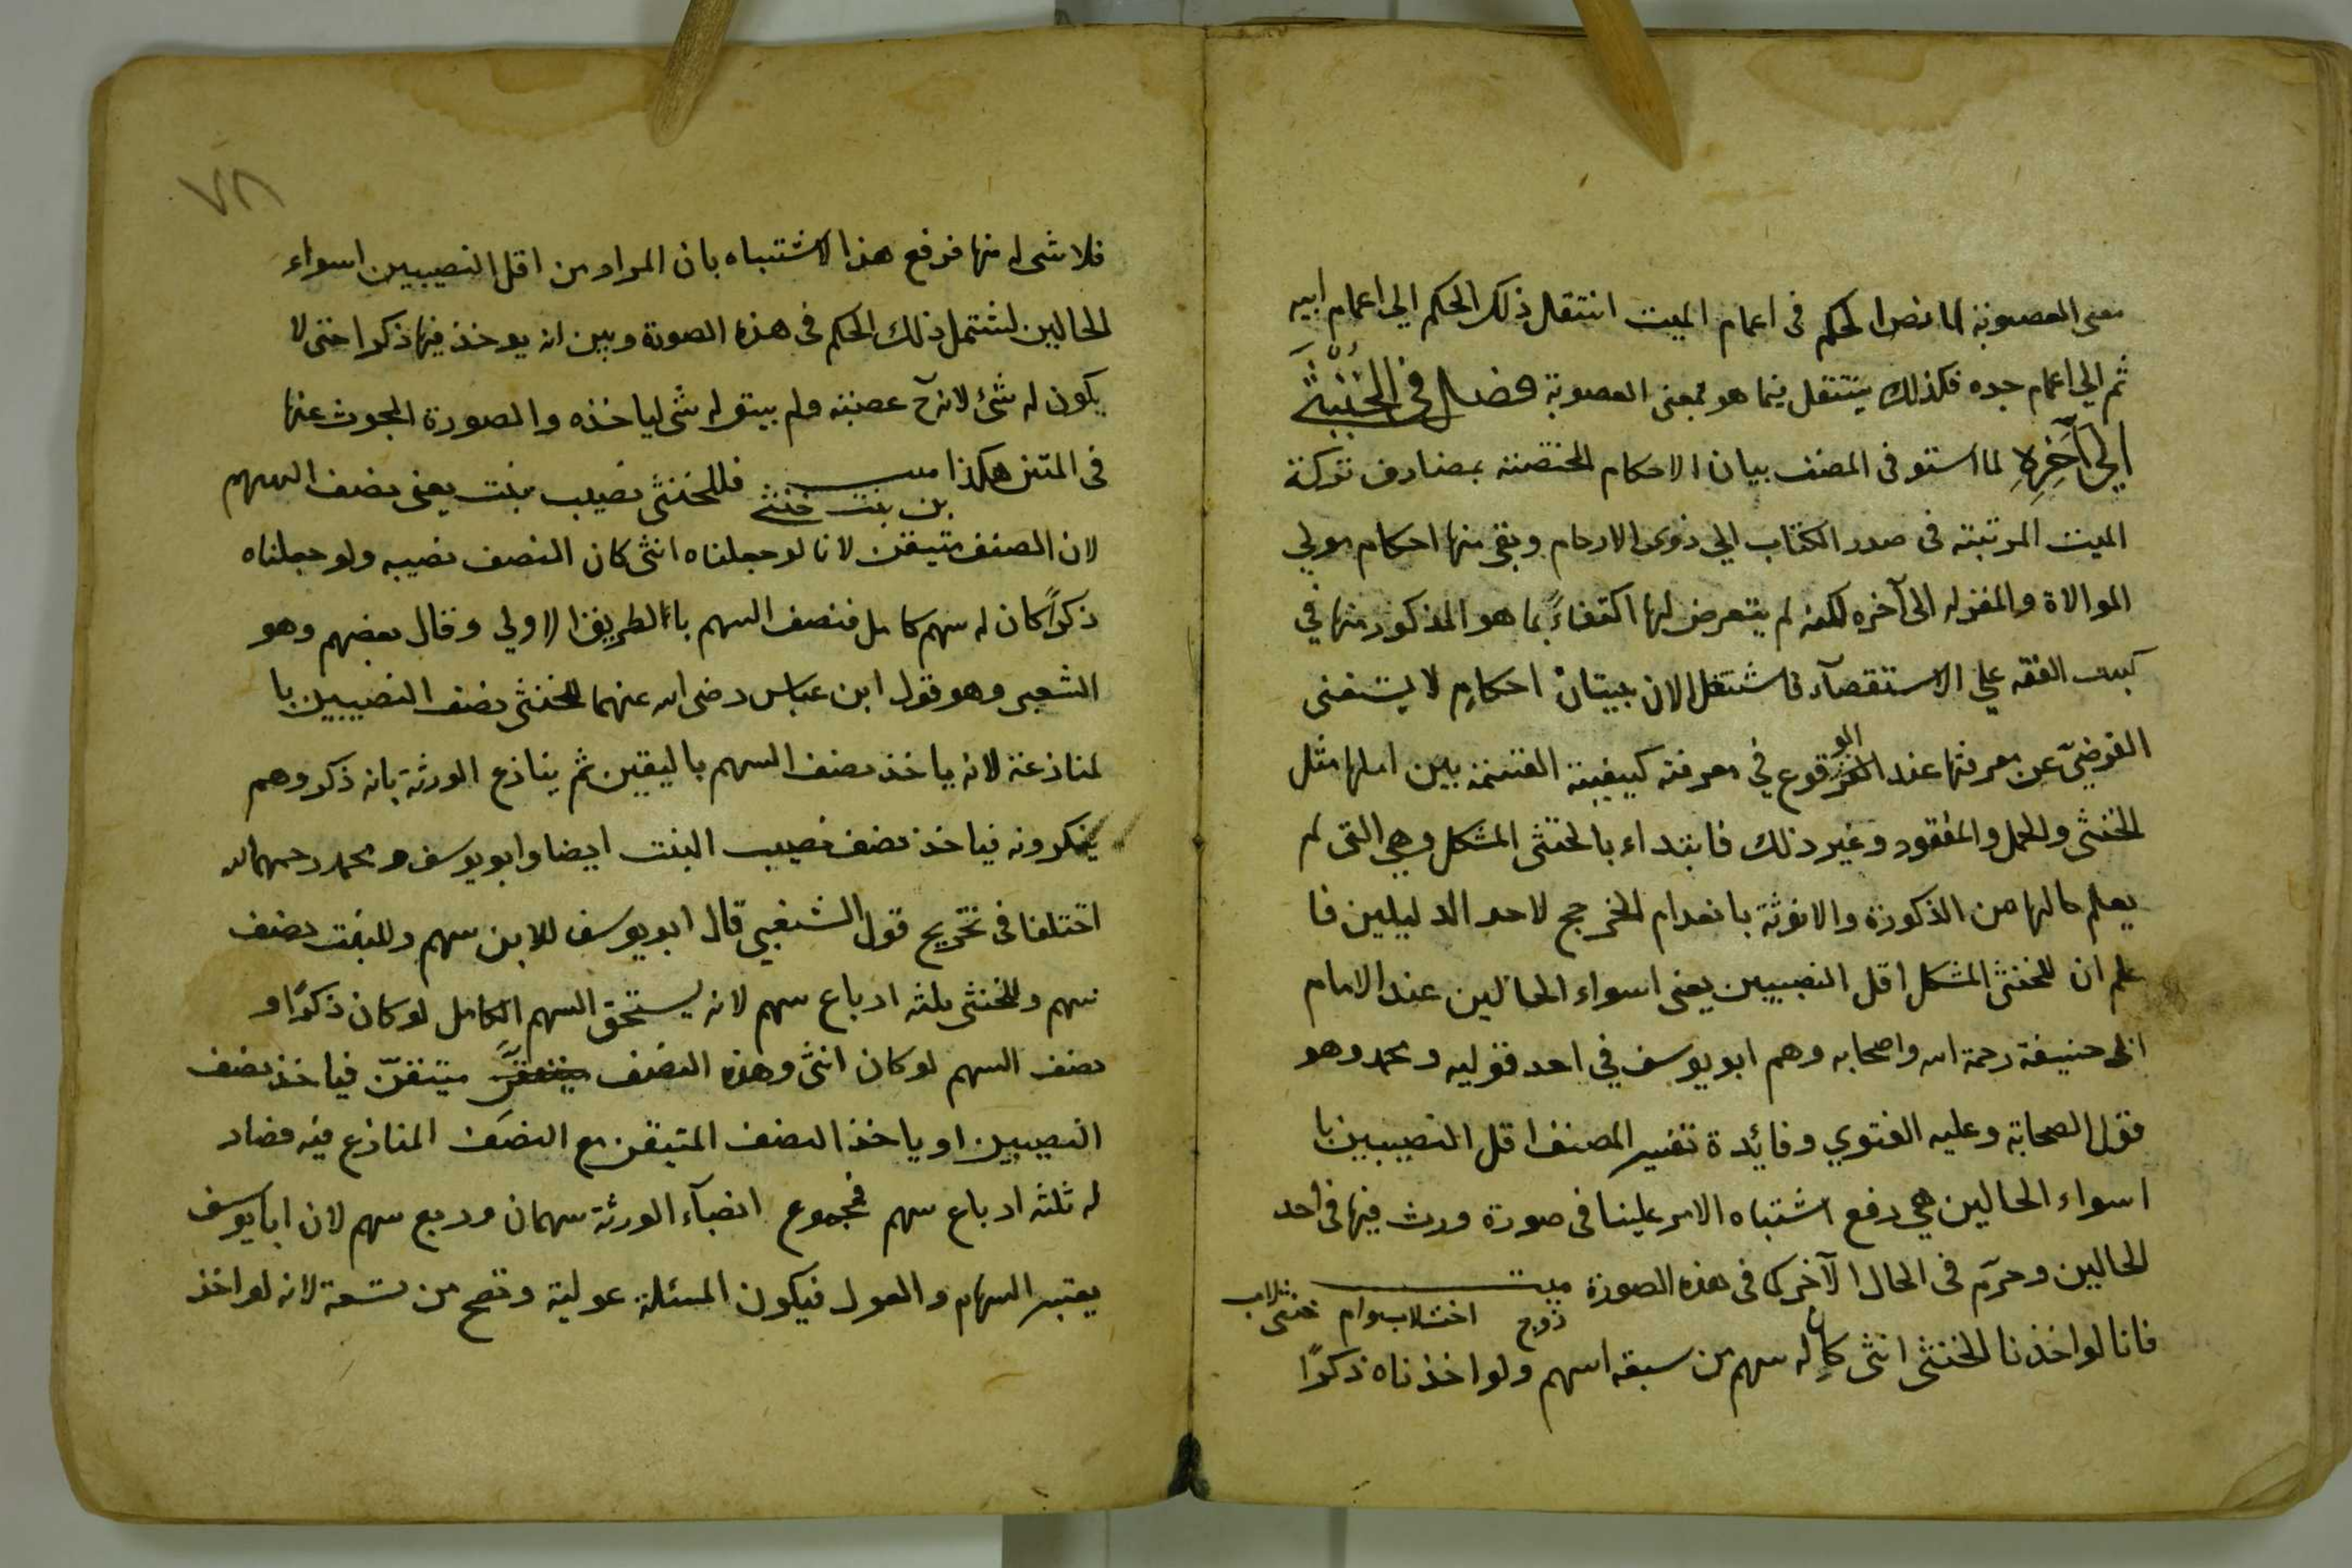 معنى العصوبة لما نص الحكم فى اعمام الميت انتقل ذلك الحكم الي اعمام ابيه
ثم الي اعمام جده فكذلك ينتقل فيما هو بمعنى العصوبة فصل في الخنثى
الي آخره لما استوفى المصنف بيان الاحكام المختصة بمصارف تركة
الميت المرتبة فى صدر الكتاب الي ذوى الارحام وبقى منها احكام مولي
الموالاة والمقر له الى آخره لكنه لم يتعرض لها اكتفاءً بما هو المذكور منها في
كتب الفقه علي الاستقصآء فاشتغل الان ببيان احكام لا يستغنى
الفرضىّ عن معرفتها عند الوقوع في معرفة كيفية القسمة بين اهلها مثل
الخنثى والحمل والمفقود وغير ذلك فابتداء بالخنثى المشكل وهي التى لم
يعلم حالها من الذكورة والانوثة بانعدام المخرج لاحد الدليلين فا
علم ان للخنثى المشكل اقل النصيبين يعنى اسواء الحالين عند الامام
ابى حنيفة رحمة الله واصحابه وهم ابو يوسف في احد قوليه ومحمد وهو
قول الصحابة وعليه الفتوي وفائدة تفسير المصنف اقل النصيبين با
اسواء الحالين هي رفع اشتباه الامر علينا فى صورة ورث فيها فى احد
الحالين وحرم فى الحال الآخر كما فى هذه الصورة ميت
زوج اخت لاب وام خنثى لاب
فانا لو اخذنا الخنثى انثى كان له سهم من سبعة اسهم ولو اخذناه ذكرًا
٧٨
فلا شى له منها فرفع هذا الاشتباه بان المراد من اقل النصيبين اسواء
الحالين لشتمل ذلك الحكم فى هذه الصورة وبين انه يوخذ فيها ذكرا حتى لا
يكون له شئ لانه ح عصبة ولم يبق له شى لياخذه والصورة المبحوث عنها
فى المتن هكذا ميت فللخنثى نصيب بنت يعنى نصف السهم
بن بنت خنثى
لان المصنف متيقن لانا لو جعلناه انثى كان النصف نصيبه ولو جعلناه
ذكراً كان له سهم كامل فنصف السهم بالطريق الاولي وقال بعضهم وهو
الشعبى وهو قول ابن عباس رضى الله عنهما للخنثى نصف النصيبين با
لمنازعة لانه ياخذ نصف السهم باليقين ثم ينازع الورثة بانه ذكر وهم
ينكرونه فياخذ نصف نصيب البنت ايضا وابو يوسف ومحمد رحمهما الله
اختلفا فى تخريج قول الشعبي قال ابو يوسف للابن سهم وللبنت نصف
سهم وللخنثى ثلثة ارباع سهم لانه يستحق السهم الكامل لو كان ذكرًا و
نصف السهم لو كان انثى وهذه النصف متيقنّ فياخذ نصف
النصيبين او ياخذ النصف المتيقن مع النصف المنازع فيه فصار
له ثلثة ارباع سهم فمجموع انصبآء الورثة سهمان وربع سهم لان ابا يوسف
يعتبر السهام والعول فيكون المسئلة عولية وتصح من تسعة لانه لو اخذ